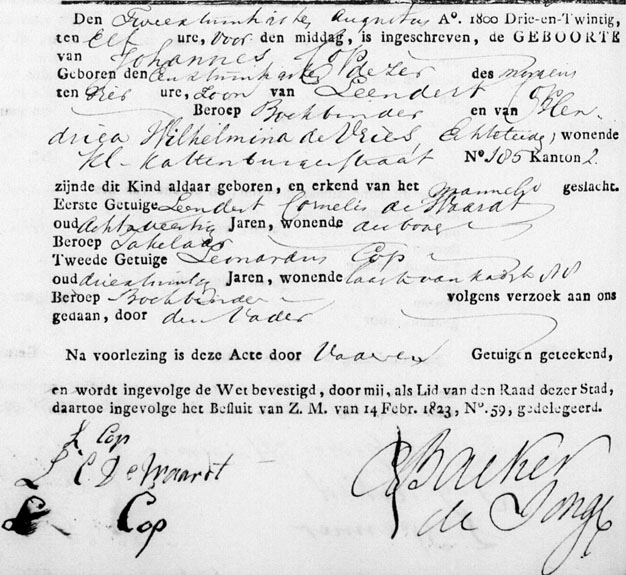 Den Tweeentwintigsten Augustus Aº. 1800 Drie-en-Twintig,
ten Elf ure, voor den middag, is ingeschreven, de GEBOORTE
van Johannes Cop
Geboren den dezer des morgens
ten Vier ure, Zoon van Leendert Cop
Beroep Boekbinder en van Hen-
drica Wilhelmina de Vries, Echtelieden, wonende
Kl. Kattenburgerstraat Nº 185 Kanton 2
zijnde dit Kind aldaar geboren, en erkend van het mannelij geslacht.
Eerste Getuige Leendert Cornelis de Waardt
oud achtenveertig Jaren, wonende
Beroep Takelaar
Tweede Getuige Leonardus Cop
oud drieentwintig Jaren, wonende
Beroep Boekbinder volgens verzoek aan ons
gedaan, door den Vader
Na voorlezing is deze Acte door Vader en Getuigen geteekend,
en wordt ingevolge de Wet bevestigd, door mij, als Lid van den Raad dezer Stad,
daartoe ingevolge het Besluit van Z. M. van 14 Febr. 1823, Nº. 59, gedelegeerd.
L Cop
L C De Waardt
L Cop
Backer
de Jonge